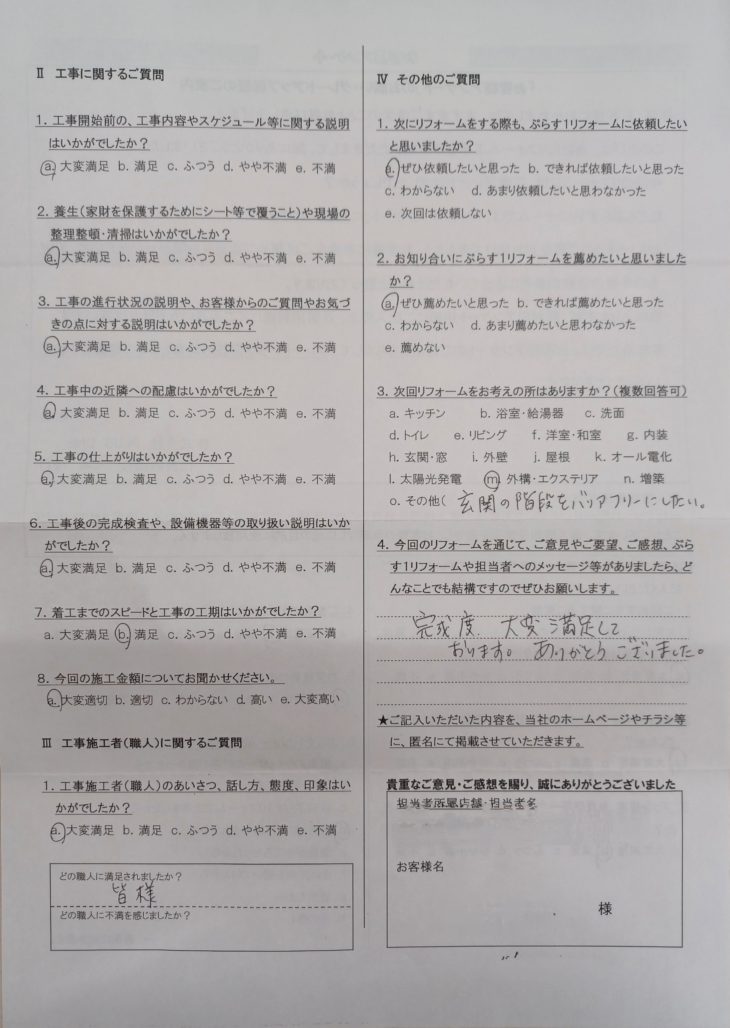 Ⅱ 工事に関するご質問
1. 工事開始前の、工事内容やスケジュール等に関する説明
はいかがでしたか？
a. 大変満足 b. 満足 c. ふつう d. やや不満 e. 不満
2. 養生（家財を保護するためにシート等で覆うこと）や現場の
整理整頓・清掃はいかがでしたか？
a. 大変満足 b. 満足 c. ふつう d. やや不満 e. 不満
3. 工事の進行状況の説明や、お客様からのご質問やお気づ
きの点に対する説明はいかがでしたか？
a. 大変満足 b. 満足 c. ふつう d. やや不満 e. 不満
4. 工事中の近隣への配慮はいかがでしたか？
a. 大変満足 b. 満足 c. ふつう d. やや不満 e. 不満
5. 工事の仕上がりはいかがでしたか？
a. 大変満足 b. 満足 c. ふつう d. やや不満 e. 不満
6. 工事後の完成検査や、設備機器等の取り扱い説明はいか
がでしたか？
a. 大変満足 b. 満足 c. ふつう d. やや不満 e. 不満
7. 着工までのスピードと工事の工期はいかがでしたか？
a. 大変満足 b. 満足 c. ふつう d. やや不満 e. 不満
8. 今回の施工金額についてお聞かせください。
a. 大変適切 b. 適切 c. わからない d. 高い e. 大変高い
Ⅲ 工事施工者（職人）に関するご質問
1. 工事施工者（職人）のあいさつ、話し方、態度、印象はい
かがでしたか？
a. 大変満足 b. 満足 c. ふつう d. やや不満 e. 不満
どの職人に満足されましたか？
皆様
どの職人に不満を感じましたか？
Ⅳ その他のご質問
1. 次にリフォームをする際も、ぷらす1リフォームに依頼したい
と思いましたか？
a. ぜひ依頼したいと思った b. できれば依頼したいと思った
c. わからない d. あまり依頼したいと思わなかった
e. 次回は依頼しない
2. お知り合いにぷらす1リフォームを薦めたいと思いました
か？
a. ぜひ薦めたいと思った b. できれば薦めたいと思った
c. わからない d. あまり薦めたいと思わなかった
e. 薦めない
3. 次回リフォームをお考えの所はありますか？（複数回答可）
a. キッチン b. 浴室・給湯器 c. 洗面
d. トイレ e. リビング f. 洋室・和室 g. 内装
h. 玄関・窓 i. 外壁 j. 屋根 k. オール電化
l. 太陽光発電 m. 外構・エクステリア n. 増築
o. その他（ 玄関の階段をバリアフリーにしたい。
4. 今回のリフォームを通じて、ご意見やご要望、ご感想、ぷら
す1リフォームや担当者へのメッセージ等がありましたら、ど
んなことでも結構ですのでぜひお願いします。
完成度、大変満足して
おります。ありがとうございました。
★ご記入いただいた内容を、当社のホームページやチラシ等
に、匿名にて掲載させていただきます。
貴重なご意見・ご感想を賜り、誠にありがとうございました
担当者所属店舗・担当者名
お客様名
様